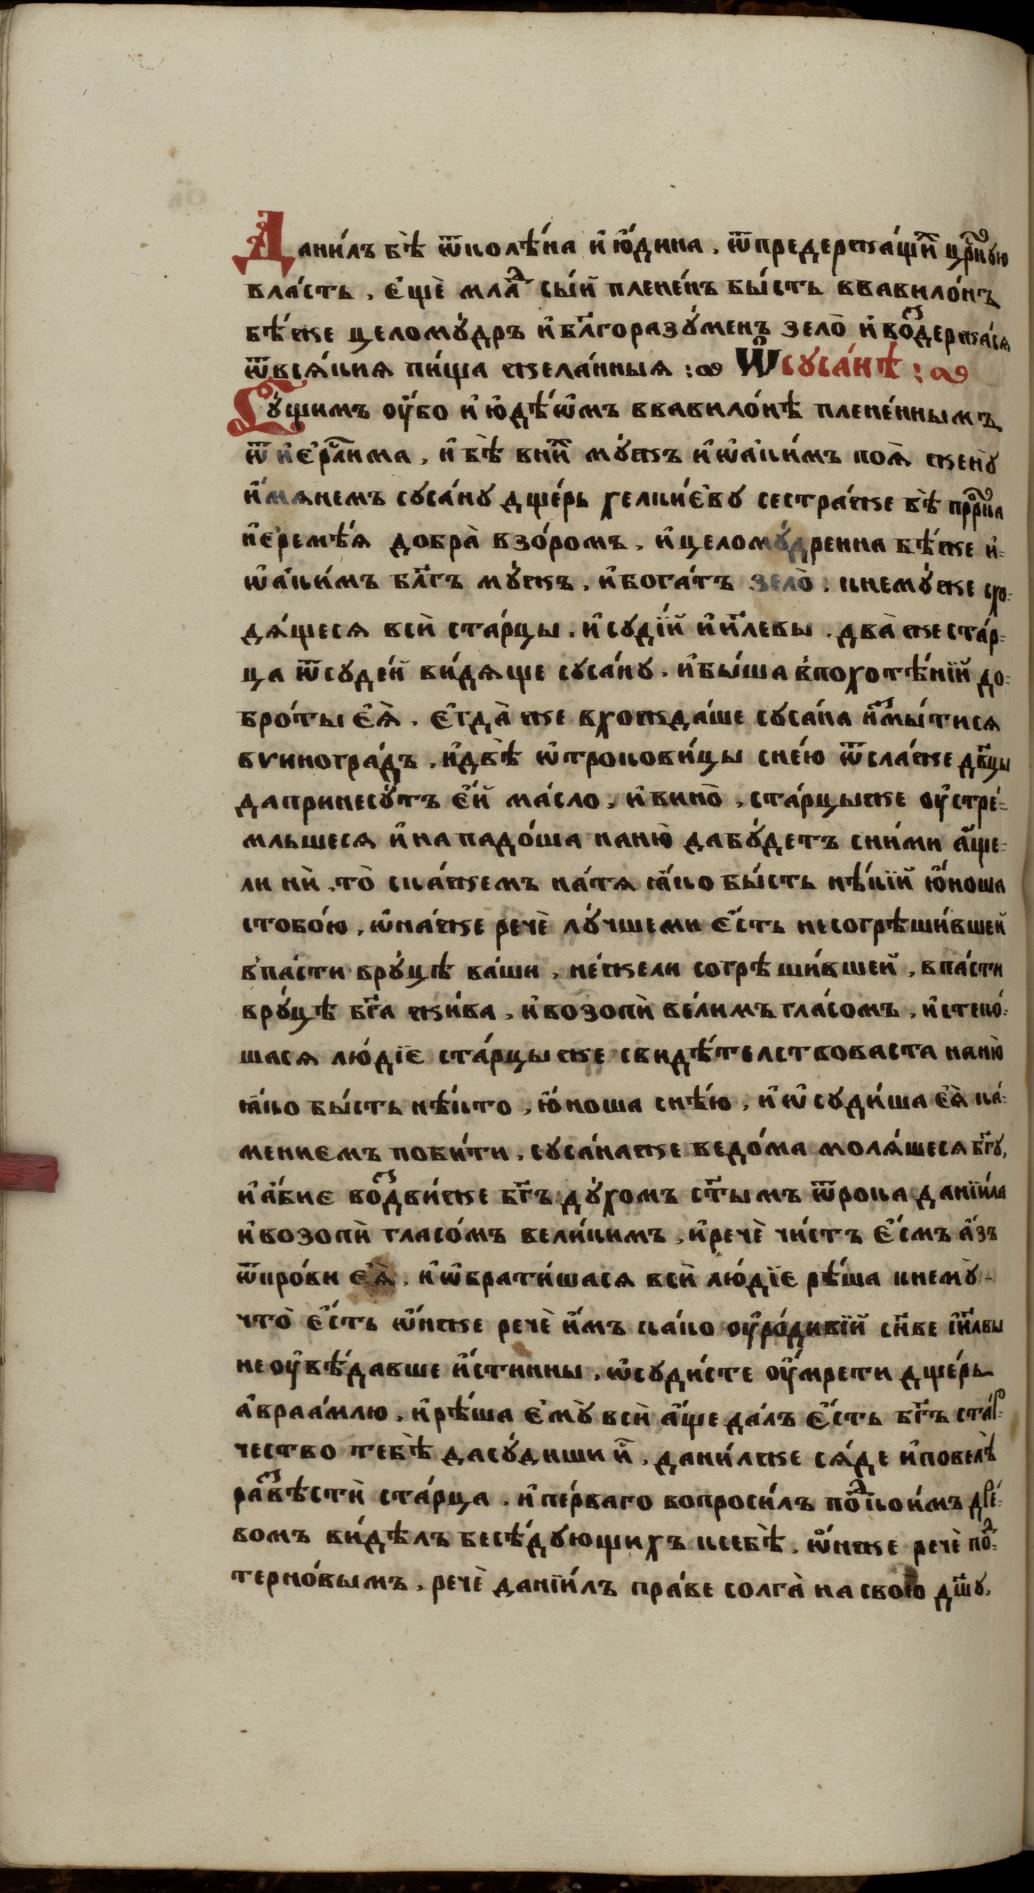 Дани́лъ бѣ̀ ѿколѣ́на и҆ ю҆́дина, ѿпредержа́щи⁠х црⷭ҇кꙋю
вла́сть, є҆щѐ мла́д сы́й плене́нъ бы́сть ввавило́нъ
бѣ́же целомꙋ́дръ и҆бл҃горазꙋ́менъ зело̀ и҆возⷣержа́сѧ
ѿвсѧ́кїѧ пи́ща жела́нныѧ :~ Ѡ҆сꙋса́нѣ :~
Сꙋ́щимъ ᲂу҆́бо и҆ ю҆дѣ́ѡ҆мъ ввавило́нѣ плене́ннымъ
ѿ и҆є҆рⷭ҇лима, и҆ бѣ̀ вни́х мꙋ́жъ и҆ѡ҆аки́мъ поѧ̀ женꙋ̀
и҆́мѧнемъ сꙋса́нꙋ дще́рь хелкі́евꙋ сестра́же бѣ̀ прⷪ҇рока
и҆єремѣ́ѧ добра̀ взо́ромъ, и҆целомꙋ́дренна бѣ́же и҆-
ѡ҆аки́мъ бл҃гъ мꙋ́жъ, и҆бога́тъ зело̀. кнемꙋ́же схо-
дѧ́щесѧ всѝ ста́рцы, и҆сꙋдїи́ и҆и҃левы, два̀ же ста́р-
ца ѿсꙋде́й ви́дѧще сꙋса́нꙋ, и҆бы́ша в̾похотѣ́нїй до-
бро́ты є҆ѧ̀. є҆гда̀ же вхожда́ше сꙋса́на и҆змы́тисѧ
вѵиногра́дъ, и҆двѣ̀ ѡ҆трокови́цы сне́ю ѿсла́же дв҃цы
даприне́сꙋтъ є҆́й ма́сло, и҆вино̀, ста́рцыже ᲂу҆стре́-
мльшесѧ и҆ на падо́ша наню̀ дабꙋ́детъ сни́ми а҆́ще-
ли нѝ, то̀ ска́жемъ на́тѧ ꙗ҆́ко бы́сть нѣ́кїй ю҆́ноша
стобо́ю, ѡ҆на́же речѐ лꙋ́чшеми є҆́сть несогрѣши́вшей
в̾па́сти врꙋ́цѣ ва́ши, не́жели согрѣши́вшей, впа́сти
врꙋ́цѣ бг҃а жи́ва, и҆возопѝ ве́лимъ гла́сомъ, и҆стеко́-
шасѧ лю́дїе ста́рцы же свидѣ́телствоваста наню̀
ꙗ҆́ко бы́сть нѣ́кто, ю҆́ноша снѣ́ю, и҆ ѡ҆сꙋди́ша є҆ѧ̀ ка́-
менїемъ поби́ти, сꙋса́наже ведо́ма молѧ́шесѧ бг҃ꙋ,
и҆ а҆́бие возⷣви́же бг҃ъ дꙋ́хомъ ст҃ымъ ѿрока данїи́ла
и҆возопѝ гласо́мъ вели́кимъ, и҆речѐ чи́стъ є҆́смъ а҆́зъ
ѿкро́ви є҆ѧ̀, и҆ ѡ҆брати́шасѧ всѝ лю́дїе рѣ́ша кнемꙋ̀-
что̀ є҆́сть ѡ҆́нже речѐ и҆́мъ ка́ко ᲂу҆ро́дивїй сн҃ве і҆и҃лвы
неᲂу҆вѣ́давше и҆́стинны, ѡ҆сꙋди́сте ᲂу҆мрети дще́рь
а҆враа́млю, и҆рѣ́ша є҆мꙋ̀ всѝ а҆́ще да́лъ є҆́сть бг҃ъ ста́р-
чество тебѣ̀ дасꙋ́диши и҆́х, дани́лже сѧ́де и҆повелѣ̀
развѣ́стѝ ста́рца, и҆ пе́рваго вопроси́лъ под̾кои́мъ дре́-
вомъ ви́дѣлъ бесѣ́дꙋющихъ ксебѣ̀, ѡ҆́нже речѐ под-
терно́вымъ, речѐ данїи́лъ пра́ве солга̀ на свою̀ дш҃ꙋ,